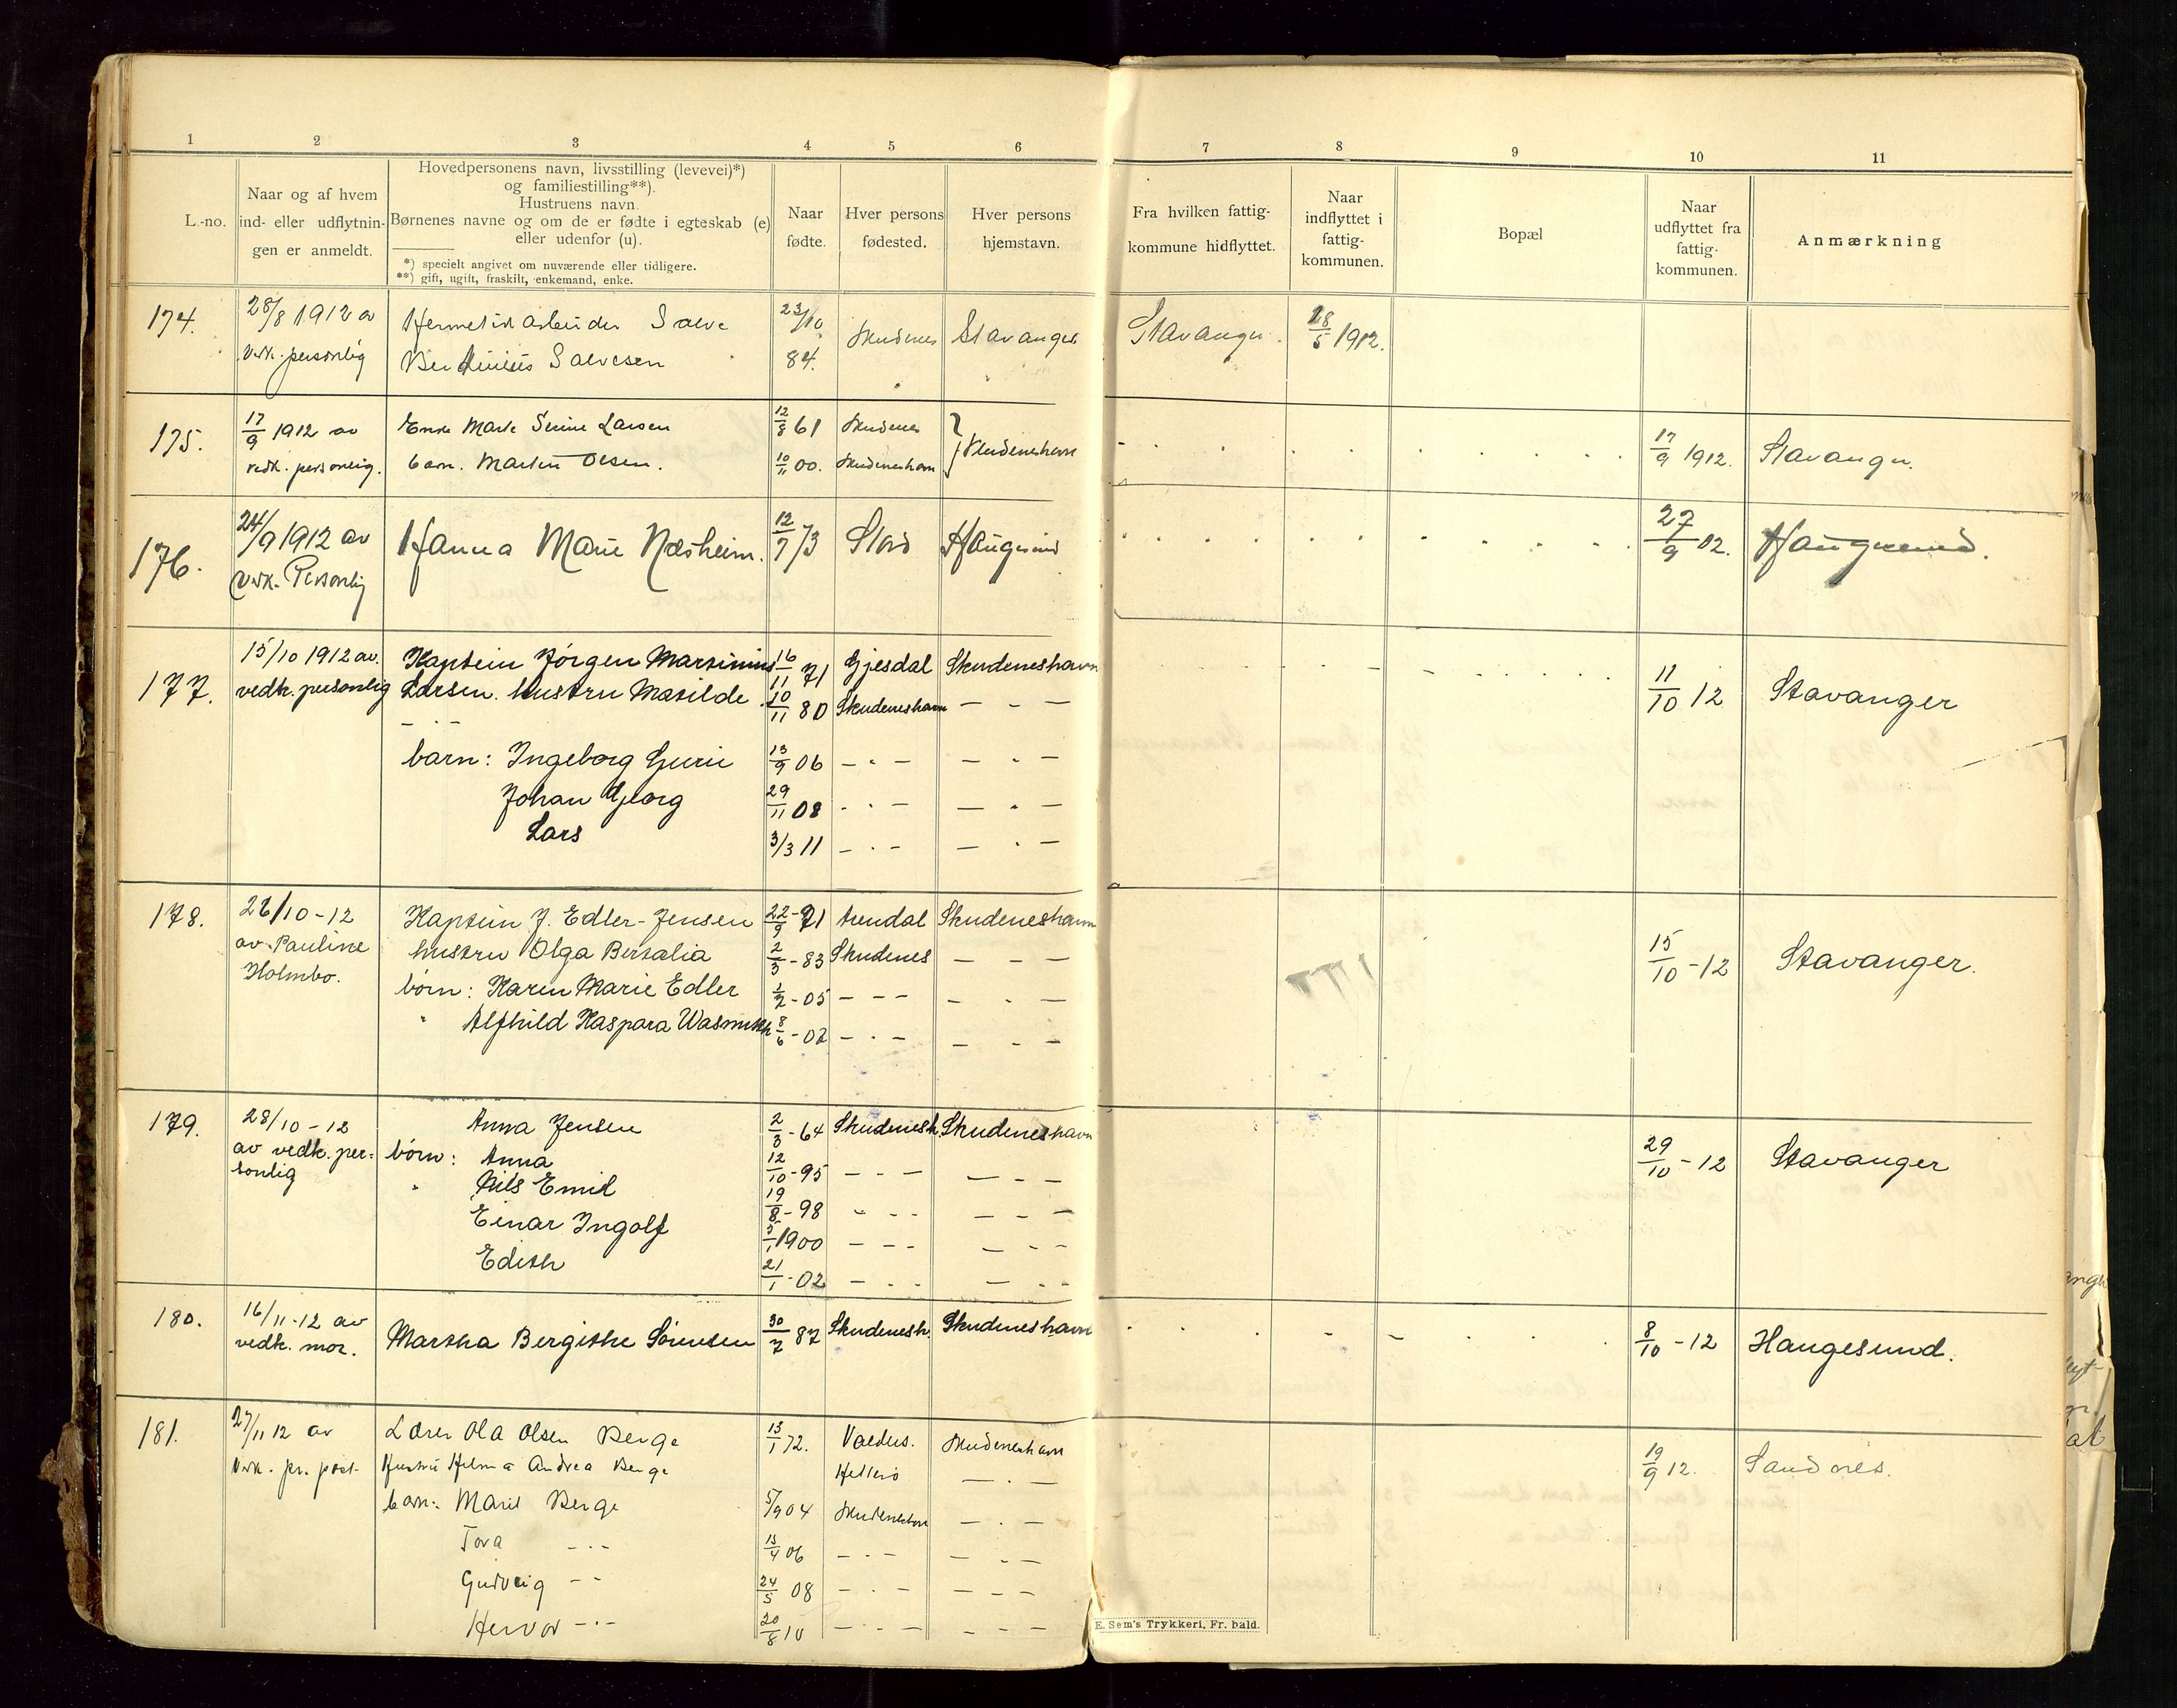 1 2 3 4 5 6 7 8 9 10 11
L.-no.
Naar og af hvem
ind- eller udflytnin-
gen er anmeldt.
Hovedpersonens navn, livsstilling (levevei)*)
og familiestilling**).
Hustruens navn.
Børnenes navne og om de er fødte i egteskab (e)
eller udenfor (u).
*) specielt angivet om nuværende eller tidligere.
**) gift, ugift, fraskilt, enkemand, enke.
Naar
fødte.
Hver persons
fødested.
Hver persons
hjemstavn.
Fra hvilken fattig-
kommune hidflyttet.
Naar
indflyttet i
fattig-
kommunen.
Bopæl
Naar
udflyttet fra
fattig-
kommunen.
Anmærkning
174. 28/8 1912 av Hermetikarbeider Salve 23/10 Skudenes Stavanger Stavanger. 28/5 1912.
Vedk. personlig Salvesen 84.
175. 17/9 1912 av Enke Marte Serine Larsen 12/8 61 Skudenes } Skudeneshavn 17/9 1912. Stavanger.
vedk. personlig. barn. Martin Olsen. 10/11 00. Skudeneshavn
176. 24/9 1912 av Hanna Marie Næsheim. 12/7 73 Stord Haugesund 27/9 02. Haugesund.
Vedk. Personlig
177. 15/10 1912 av. Kaptein Jørgen Martinius 16/11 71 Gjesdal Skudeneshavn 11/10 12 Stavanger
vedk. personlig Larsen. Hustru Matilde 10/11 80 Skudeneshavn — - —
— - —
barn: Ingeborg Gurie 13/9 06 — - — — - —
Johan Georg 29/11 08 - - — — - —
Lars 3/3 11 — - — — - —
178. 26/10 - 12 Kaptein J. Edler-Jensen 22/9 - 71 Arendal Skudeneshavn 15/10 - 12 Stavanger.
av Pauline hustru Olga Bertalia 2/3 - 83 Skudenes — - —
Holmbo. børn: Karen Marie Edler 1/2 - 05 — - — — - —
" Alfhild Kaspara Wasmuth 8/6 - 02 — - — — - —
179. 28/10 - 12 Anna Jensen 2/3 - 64 Skudenesh. Skudeneshavn 29/10 - 12 Stavanger
av vedk. per- børn: Anna 12/10 - 95 — - — — - —
sonlig " Nils Emil 19/8 - 98 - - - — - —
Einar Ingolf 3/1 1900 — - - — - -
Edith 21/1 - 02 — - - — - -
180. 16/11 - 12 av Martha Bergithe Sørensen 30/7 87 Skudenesh. Skudeneshavn 8/10 - 12 Haugesund.
vedk. mor.
181. 27/11 12 av Lærer Ola Olsen Berge 13/1 72. Valdres. Skudeneshavn 19/9 12. Sandnes.
Vedk. pr. post- Hustru Helma Andrea Berge Hetlesø — - —
barn: Marit Berge 5/9 04 Skudeneshavn — - —
Tora - - - 13/4 06 — - — — - —
Gudveig - - 24/5 08 — - — — - —
Hervor - - - 20/8 10 — - — — - —
E. Sem's Trykkeri, Fr. hald.